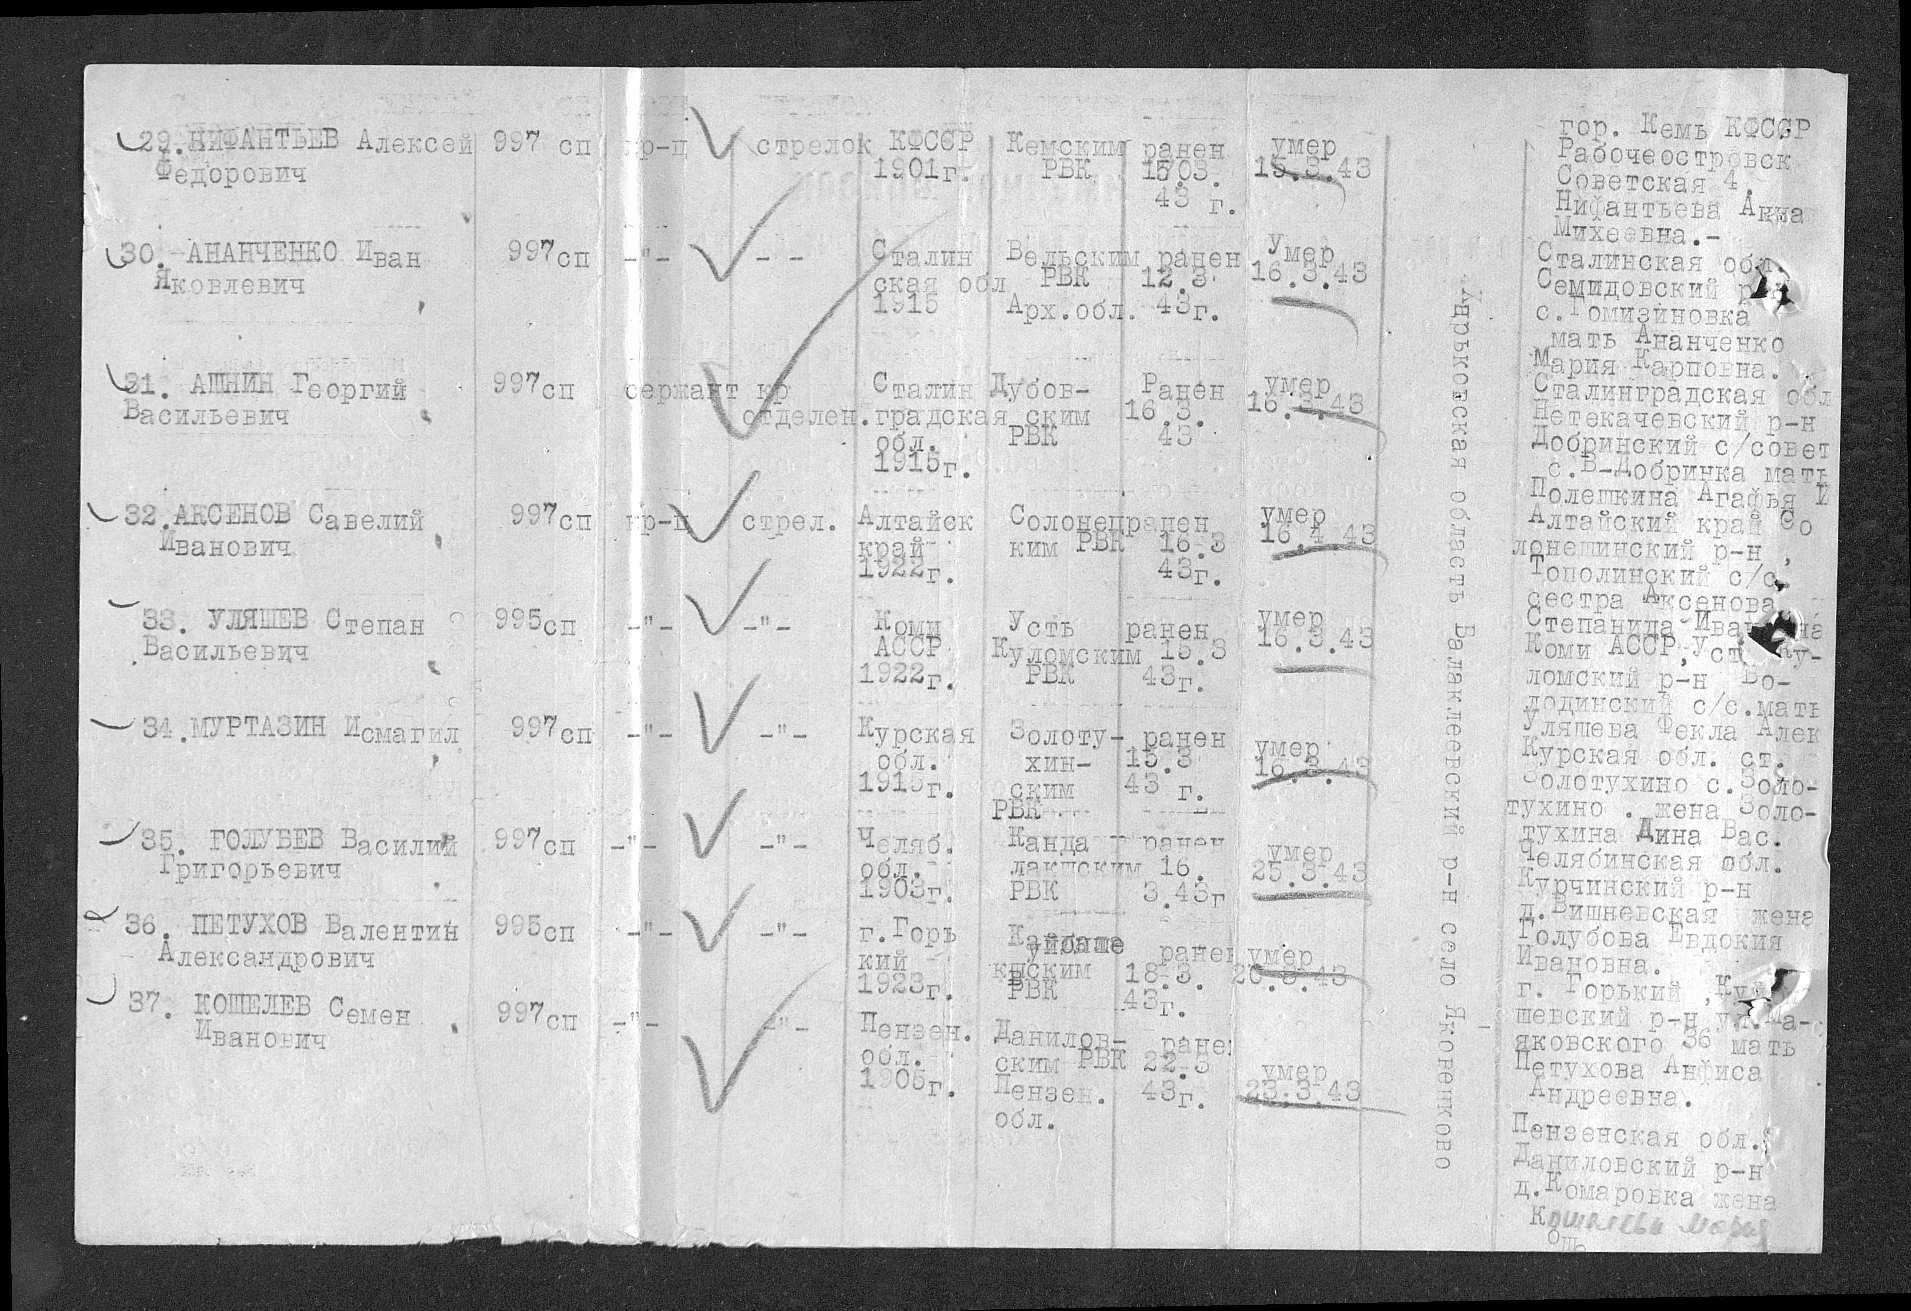 29. НИФАНТЬЕВ Алексей 997 сп кр-ц стрелок КФССР Кемским ранен умер
Федорович 1901г. РВК 15.03. 15.3.43
43 г.
гор. Кемь КФССР
Рабочеостровск
Советская 4.
Нифантьева Анна
Михеевна.-
30. АНАНЧЕНКО Иван 997сп -"- - - Сталин Вельским ранен Умер
Яковлевич ская обл РВК 12.3 16.3.43
1915 Арх.обл. 43г.
Сталинская обл.
Семидовский
с.Гомизиновка
мать Ананченко
Мария Карповна.
31. АШНИН Георгий 997сп сержант кр Сталин Дубов- Ранен умер
Васильевич отделен. градская ским 16.3. 16.3.43
обл. РВК 43
1915г.
Сталинградская обл
Нетекачевский р-н
Добринский с/совет
с.В-Добринка мать
Полешкина Агафья И
32. АКСЕНОВ Савелий 997сп кр-ц стрел. Алтайск Солонец ранен умер
Иванович край ким РВК 16.3 16.4.43
1922г. 43г.
Алтайский край Со
лонешинский р-н ,
Тополинский с/с.
сестра Аксенова
Степанида
33. УЛЯШЕВ Степан 995сп -"- -"- Коми Усть ранен умер
Васильевич АССР Куломским 15.3 16.3.43
1922г. РВК 43г.
Коми АССР,
ломский р-н Во-
лодинский с/с.мать
Уляшева Фекла Алек
34. МУРТАЗИН Исмагил 997сп -"- -"- Курская Золоту- ранен умер
обл. хин- 15.3 16.3.43
1915г. ским 43 г.
РВК
Курская обл. ст.
Золотухино с.Золо-
тухино . жена Золо-
тухина Дина Вас.
35. ГОЛУБЕВ Василий 997сп -"- -"- Челяб. Канда - ранен умер
Григорьевич обл. лакшским 16. 25.3.43
1903г. РВК 3.43г
Челябинская обл.
Курчинский р-н
д.Вишневская жена
Голубова Евдокия
Ивановна.
36. ПЕТУХОВ Валентин 995сп -"- -"- г.Горь ранен умер
Александрович кий 18.3. 20.3.43
1923г. РВК 43г.
г. Горький
шевский р-н
яковского 36 мать
Петухова Анфиса
Андреевна.
37. КОШЕЛЕВ Семен 997сп -"- -"- Пензен. Данилов- ранен умер
Иванович обл. ским РВК 22.3 23.3.43
1905г. Пензен. 43г.
обл.
Пензенская обл.
Даниловский р-н
д.Комаровка жена
Кошелева Мария
Харьковская область Балаклеевский р-н село Яковенково